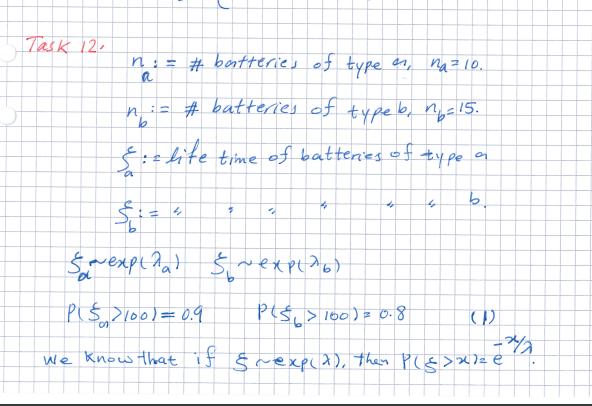 Task 12.
n_a := # batteries of type a, n_a = 10.
n_b := # batteries of type b, n_b = 15.
ξ_a := life time of batteries of type a
ξ_b := " " " " " " b.
ξ_a ~ exp(λ_a) ξ_b ~ exp(λ_b)
P(ξ_a > 100) = 0.9 P(ξ_b > 100) = 0.8 (1)
we know that if ξ ~ exp(λ), then P(ξ > x) = e^{-x/λ}.